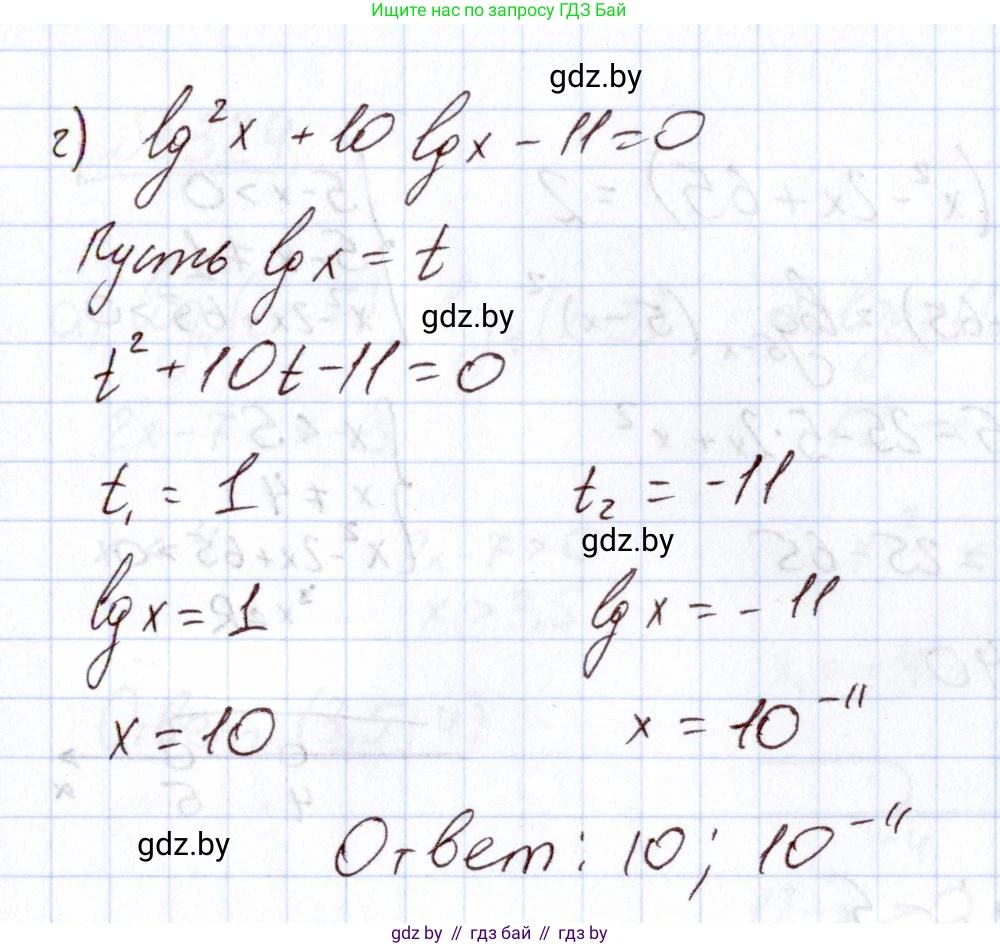 Ищите нас по запросу ГДЗ Бай
gdz.by
г) lg²x + 10 lgx - 11 = 0
Пусть lgx = t
gdz.by
t² + 10t - 11 = 0
t₁ = 1 t₂ = -11
gdz.by
lgx = 1 lgx = -11
x = 10 x = 10⁻¹¹
gdz.by
Ответ: 10; 10⁻¹¹
gdz.by // гдз бай // гдз by